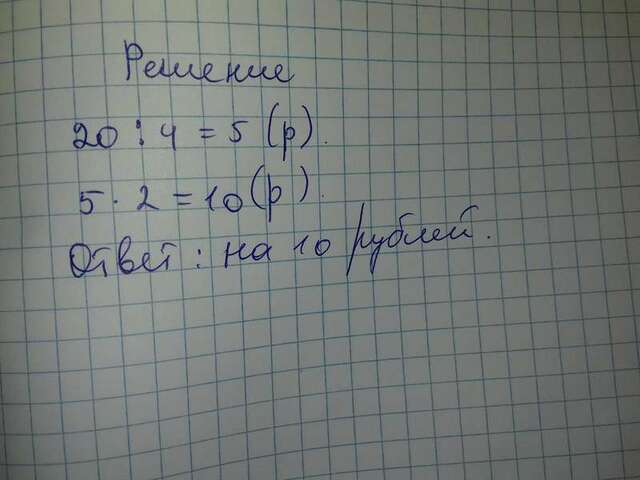 Решение
20 : 4 = 5 (р).
5 · 2 = 10 (р).
Ответ : на 10 рублей.